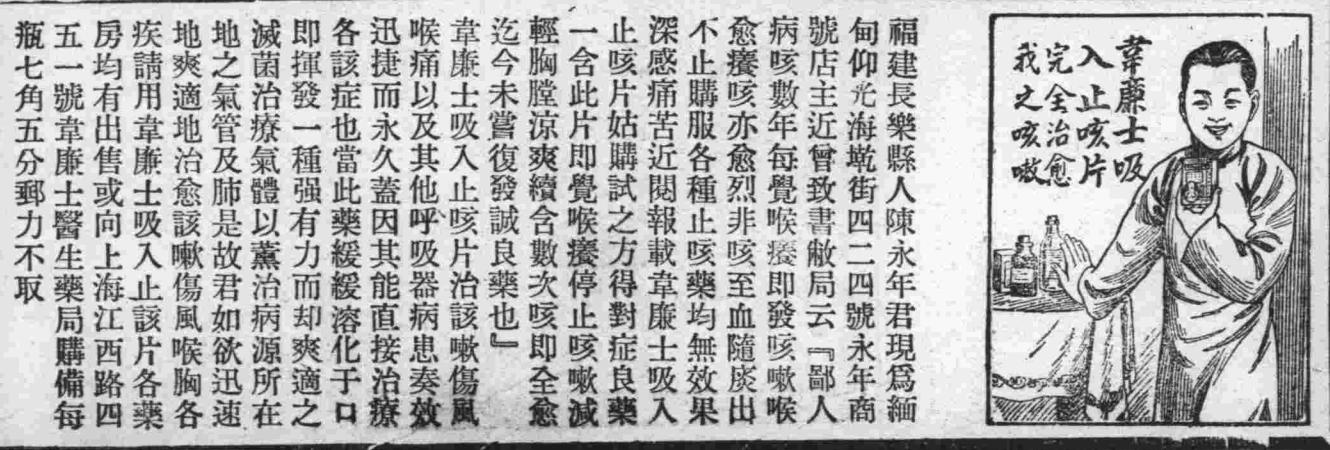 韋廉士吸
入止咳片
完全治愈
我之咳嗽
福建長樂縣人陳永年君現爲緬
甸仰光海墘街四二四號永年商
號店主近曾致書敝局云『鄙人
病咳數年每覺喉癢即發咳嗽喉
愈癢咳亦愈烈非咳至血隨痰出
不止購服各種止咳藥均無效果
深感痛苦近閱報載韋廉士吸入
止咳片姑購試之方得對症良藥
一含此片即覺喉癢停止咳嗽減
輕胸膛涼爽續含數次咳即全愈
迄今未嘗復發誠良藥也』
韋廉士吸入止咳片治該嗽傷風
喉痛以及其他呼吸器病患奏效
迅捷而永久蓋因其能直接治療
各該症也當此藥緩緩溶化于口
即揮發一種强有力而却爽適之
滅菌治療氣體以薰治病源所在
地之氣管及肺是故君如欲迅速
地爽適地治愈該嗽傷風喉胸各
疾請用韋廉士吸入止該片各藥
房均有出售或向上海江西路四
五一號韋廉士醫生藥局購備每
瓶七角五分郵力不取